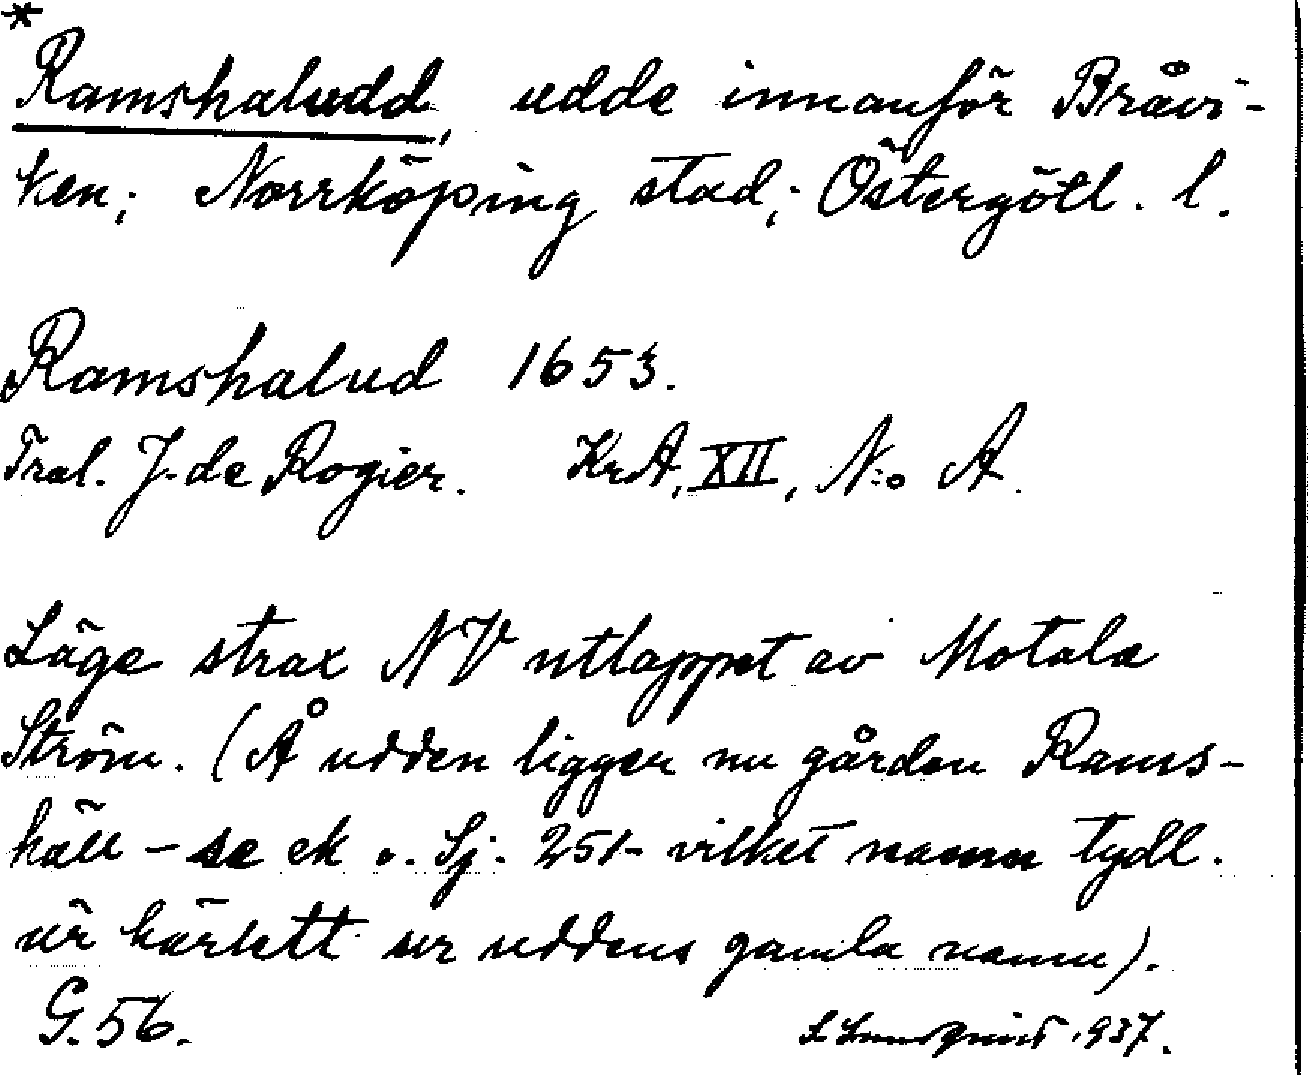 *
Ramshaludd, udde innanför Bråvi-
ken; Norrköping stad; Östergötl. l.
Ramshalud 1653.
Tral. J. de Rogier. KrA, XII, N:o A.
Läge strax NV utloppet av Motala
Ström. (Å udden ligger nu gården Rams-
häll - se ek. Sj. 251 - vilket namn tydl.
är härlett ur uddens gamla namn).
G. 56. Lundquist 1937.